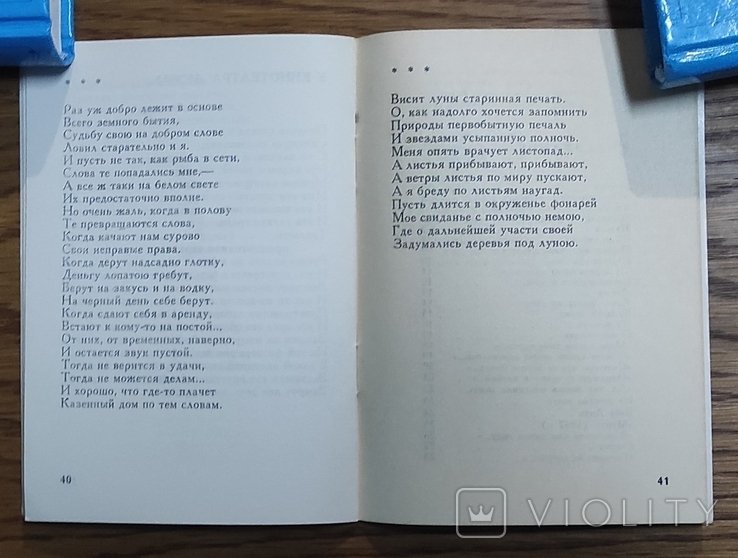 * * *
Раз уж добро лежит в основе
Всего земного бытия,
Судьбу свою на добром слове
Ловил старательно и я.
И пусть не так, как рыба в сети,
Слова те попадались мне,—
А все ж таки на белом свете
Их предостаточно вполне.
Но очень жаль, когда в полову
Те превращаются слова,
Когда качают нам сурово
Свои неправые права.
Когда дерут надсадно глотку,
Деньгу лопатою гребут,
Берут на закусь и на водку,
На черный день себе берут.
Когда сдают себя в аренду,
Встают к кому-то на постой...
От них, от временных, наверно,
И остается звук пустой.
Тогда не верится в удачи,
Тогда не можется делам...
И хорошо, что где-то плачет
Казенный дом по тем словам.
40
* * *
Висит луны старинная печать.
О, как надолго хочется запомнить
Природы первобытную печаль
И звездами усыпанную полночь.
Меня опять врачует листопад...
А листья прибывают, прибывают,
А ветры листья по миру пускают,
А я бреду по листьям наугад.
Пусть длится в окруженье фонарей
Мое свиданье с полночью немою,
Где о дальнейшей участи своей
Задумались деревья под луною.
41
VIOLITY